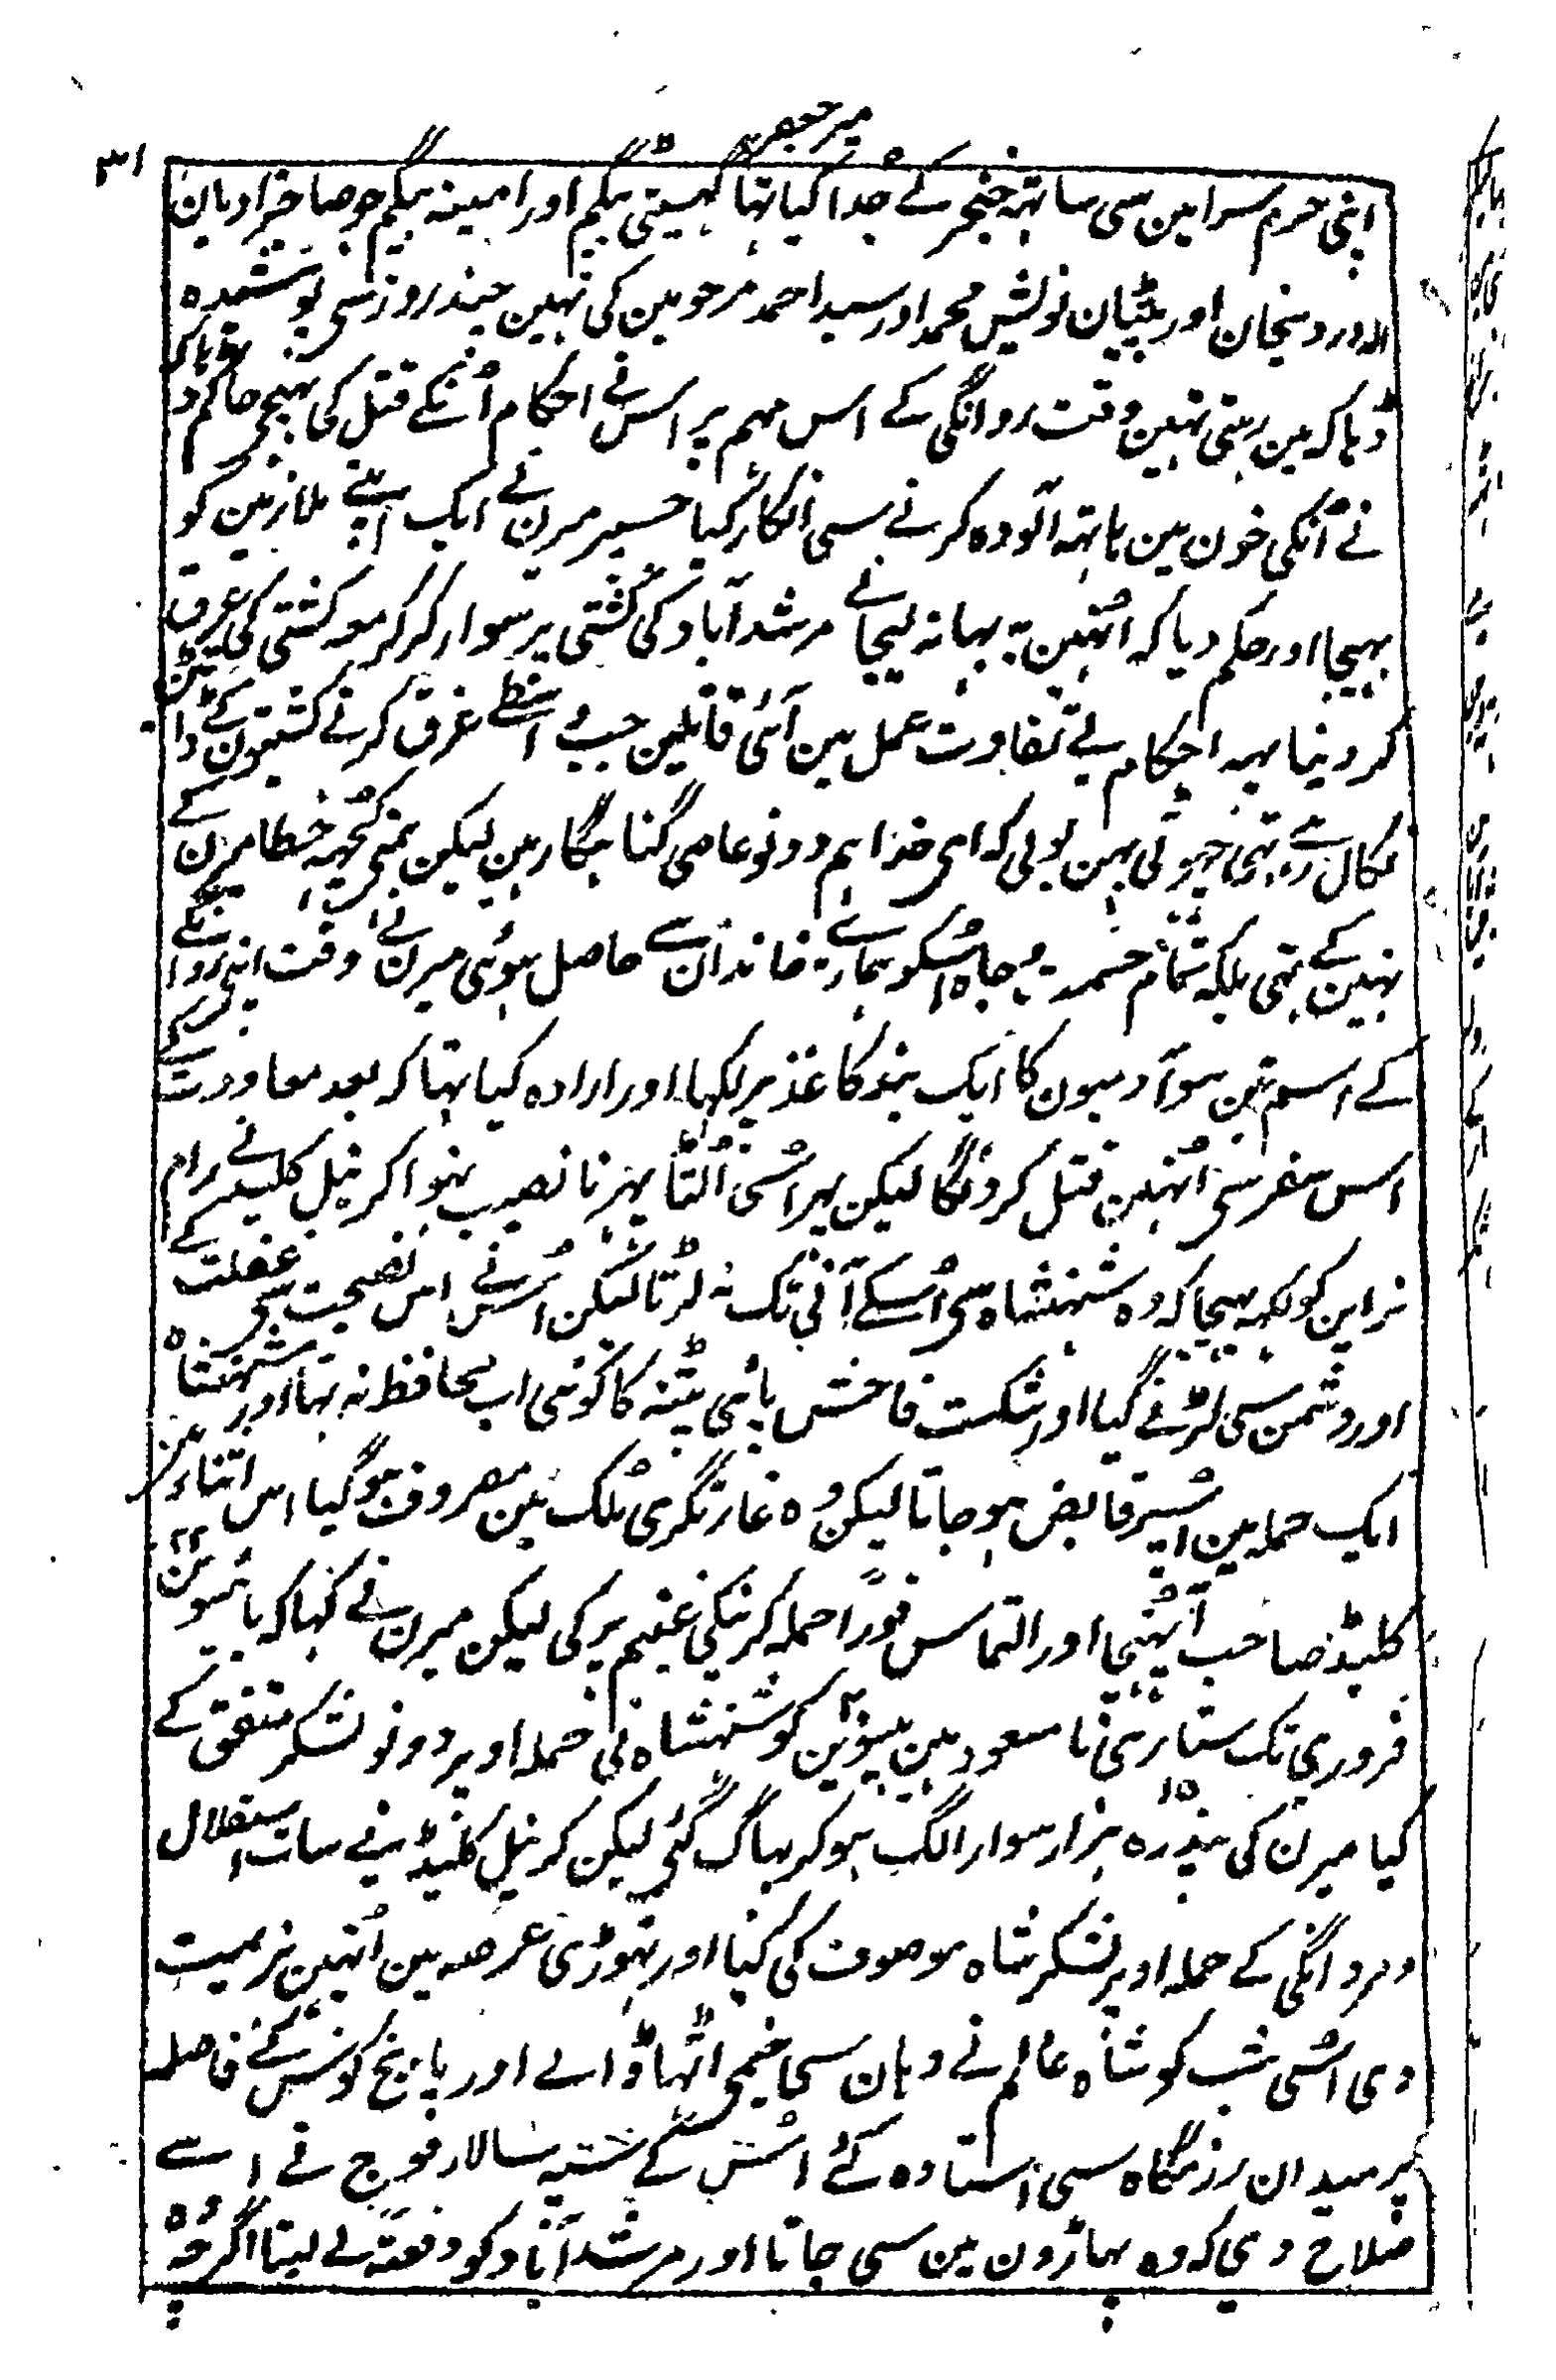 میر جعفر
۳۱
اپنی حرم سرا مین سی ساتہہ خنجر کے جدا کیا تہا گہسیتی بیگم اور امینہ بیگم جو صاحبزادیان
الہ وردیخان اور بیٹیان نولیش محمد اور سید احمد مرحومین کی تہین چند روز سی پوشیدہ
ڈہاکہ مین رہتی تہین وقت روانگی کے اس مہم پر اس نے احکام اُنکے قتل کی بہیجی حاکم ڈہاکہ
نے اُنکی خون مین ہاتہہ آلودہ کرنے سی انکار کیا جسپر میرن نے ایک اپنے ملازمین کو
بہیجا اور حکم دیا کہ اُنہین بہ بہانہ لیجانے مرشدآباد کی کشتی پر سوار کر کر مو کشتی کی غرق
کر دینا یہہ احکام بے تفاوت عمل مین آئی قاتلین جب واسطے غرق کرنے کشتیون کے ڈاٹین
نکال رہے تہی چہوٹی بہن بولی کہ ای خدا ہم دونو عاصی گناہگار ہین لیکن ہمنی کچہہ خطا میرن کے
نہین کے تہی بلکہ تمام حشمت و جاہ اُسکو ہمارے خاندان سے حاصل ہوئی میرن نے وقت اپنی روانگے
کے اسم تین سو آدمیون کا ایک بند کاغذ پر لکہا اور ارادہ کیا تہا کہ بعد معاودت کے
اس سفر سی اُنہین قتل کرونگا لیکن پہر اُسی اُلٹا پہرنا نصیب نہوا کرنیل کلیڈ نے رام
نراین کو لکہہ بہیجا کہ وہ شہنشاہ سی اُسکے آنی تک نہ لڑتا لیکن اُس نے اس نصیحت سی غفلت کے
اور دشمن سی لڑنے گیا اور شکست فاحش پائی پٹنہ کا کوئی اب محافظ نہ تہا اور شہنشاہ
ایک حملہ مین اُسپر قابض ہو جاتا لیکن وہ غارتگری مُلک مین مصروف ہو گیا اس اثناء مین
کلیڈ صاحب آپہُنچا اور التماس فوراً حملہ کرنیکی غنیم پر کی لیکن میرن نے کہا کہ بائیسوین ۲۲
فروری تک ستاری نا مسعود ہین بیسوین ۲۰ کو شہنشاہ نی حملہ اوپر دونو لشکر متفق کے
کیا میرن کی پندرہ ۱۵ ہزار سوار الگ ہو کر بہاگ گئی لیکن کرنیل کلیڈ نے سات استقلال
و مردانگی کے حملہ اوپر لشکر شاہ موصوف کی کیا اور تہوڑی عرصہ مین اُنہین ہزیمیت
دی اُسی شب کو شاہ عالم نے وہان سی خیمی اٹہا ڈالے اور پانچ کوس کے فاصلہ
پر میدان رزمگاہ سی استادہ کئے اُس کے سپہ سالار فوج نے اسے
صلاح دی کہ وہ پہاڑون مین سی جاتا اور مرشدآباد کو دفعۃً لے لیتا اگر وہ